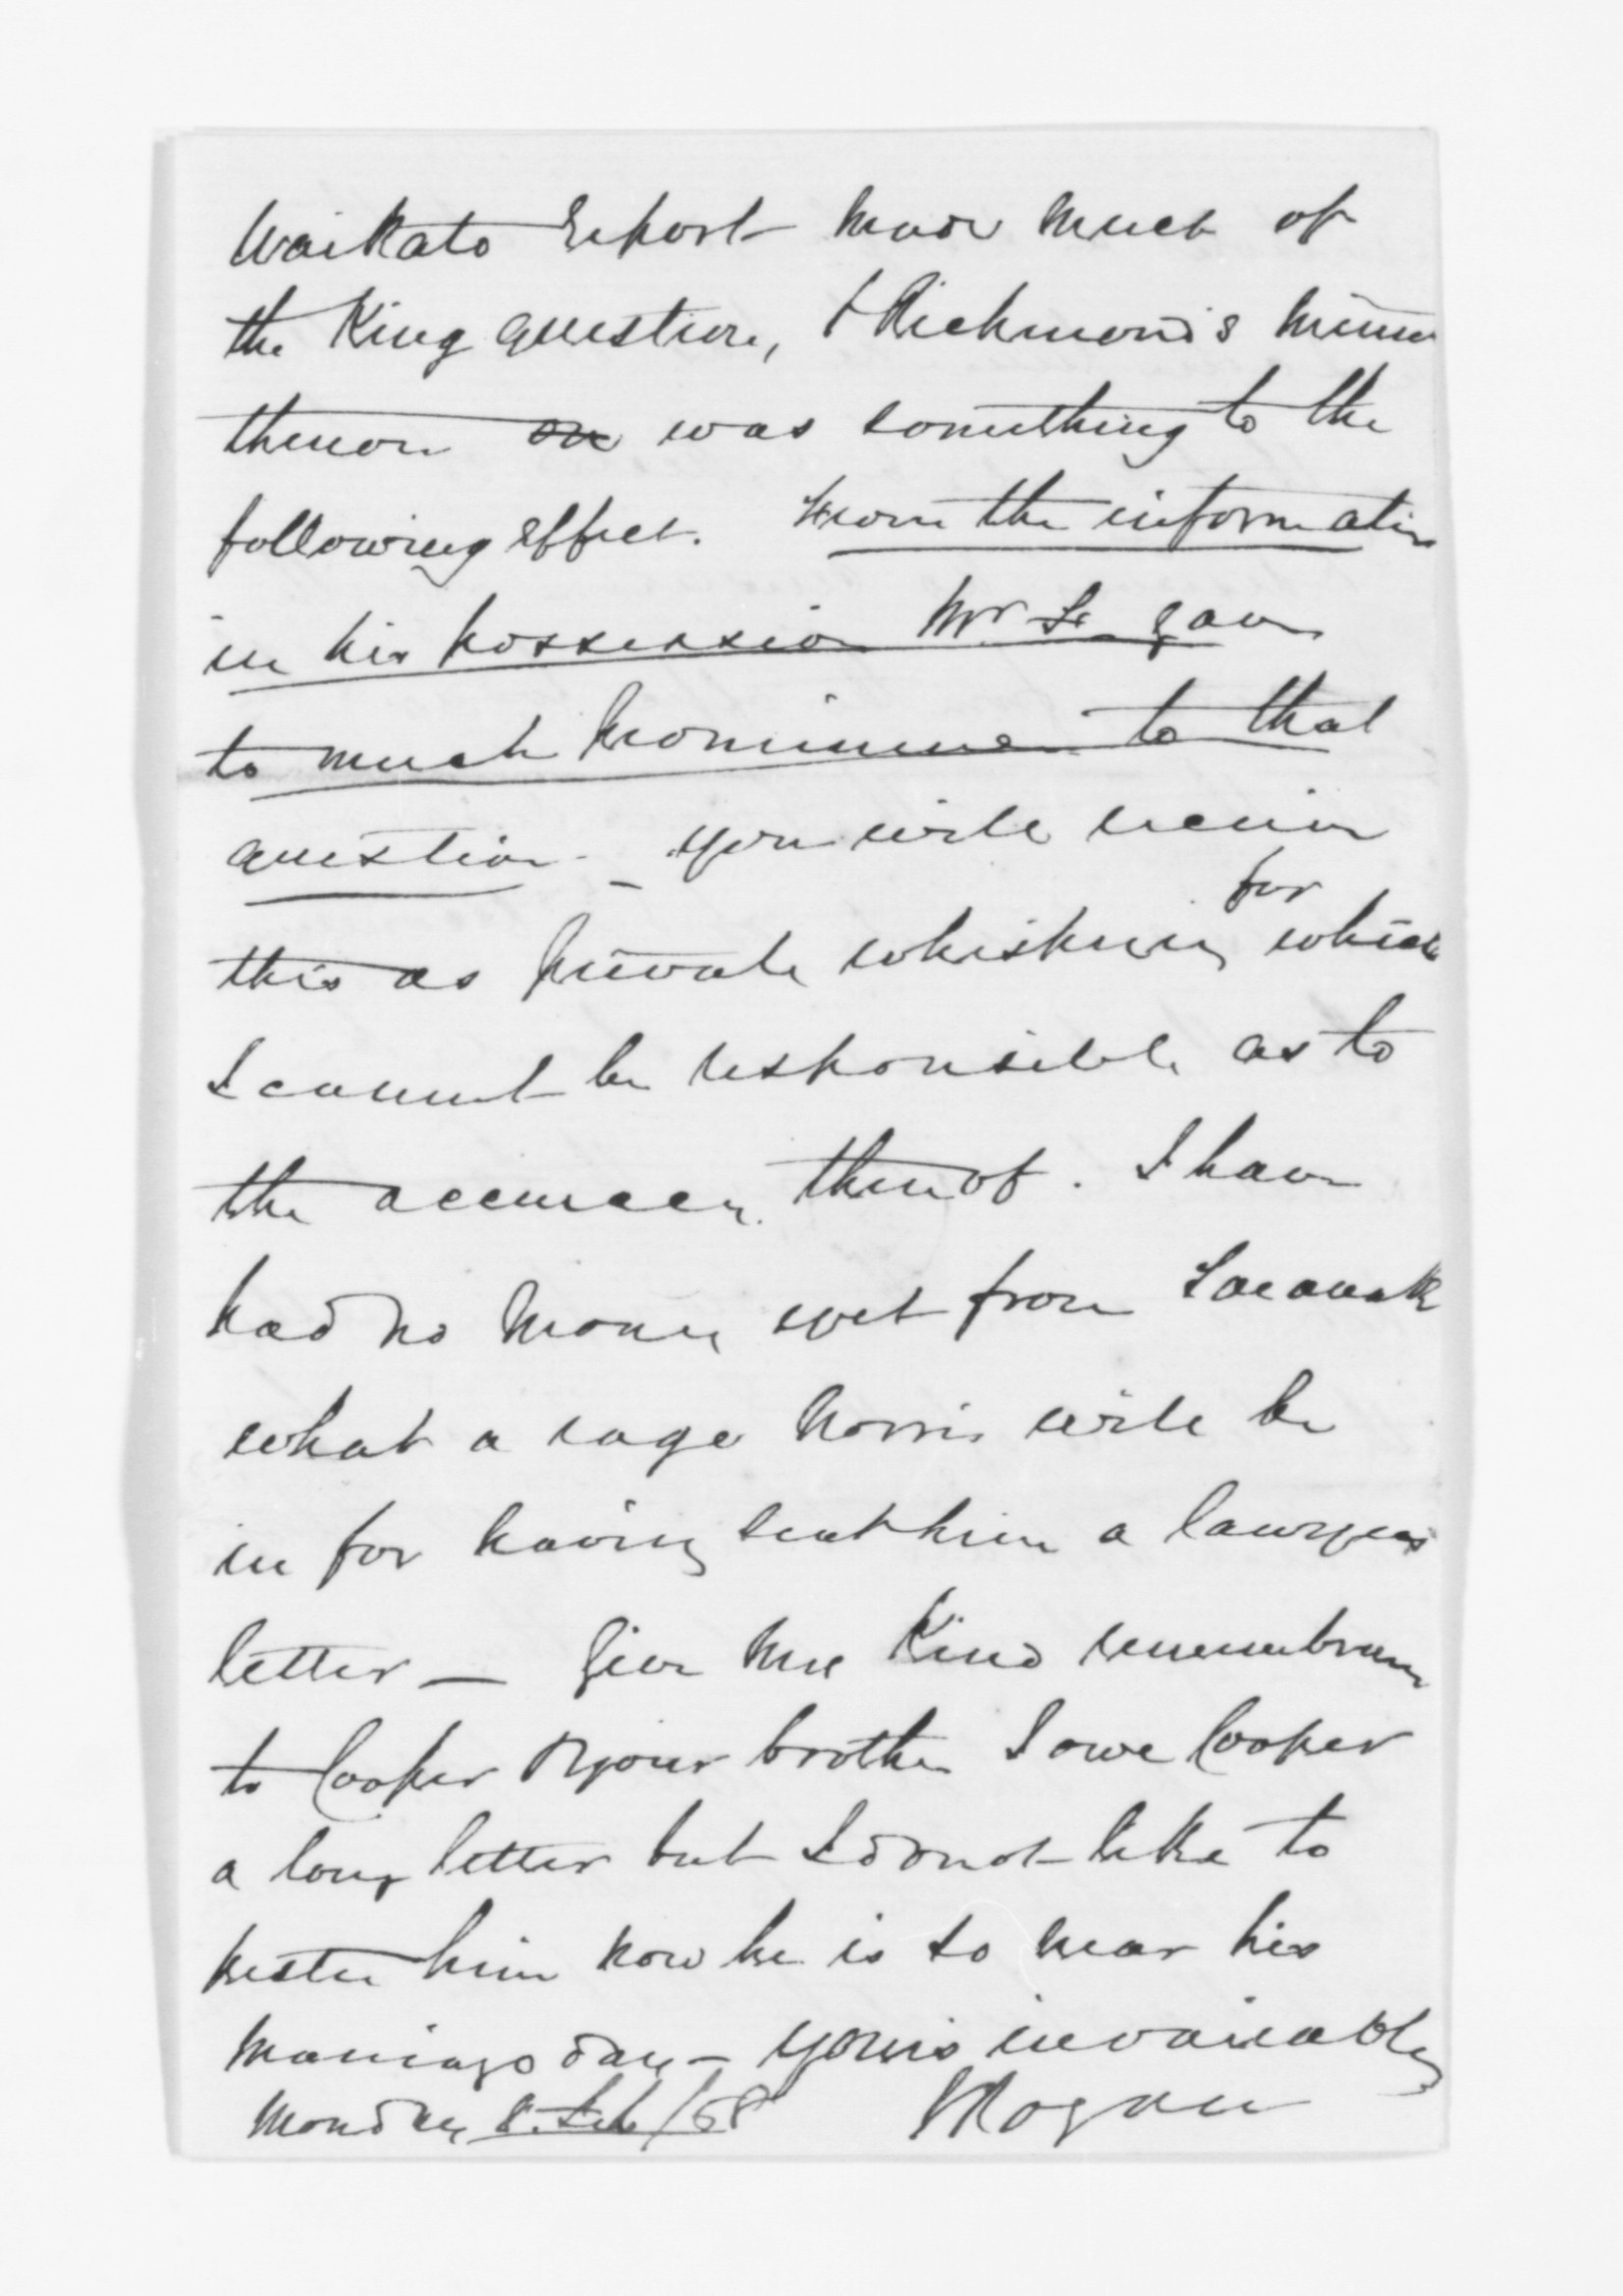 Waikato Report made much of
the King question, & Richmond's minute
thereon on was something to the
following effect. From the information
in his possession Mr. S. gave
to much prominence to that
question - you will receive
this as private whispering for which
I cannot be responsible as to
the accuracy thereof. I have
had no money yet from Taranaki
what a rage Norris will be
in for having sent him a lawyers
letter — Give my kind remembrance
to Cooper & your brother I owe Cooper
a long letter but I do not like to
pester him now he is so near his
marriage day - yours invariably
Monday 8. Feb /58 Rogan